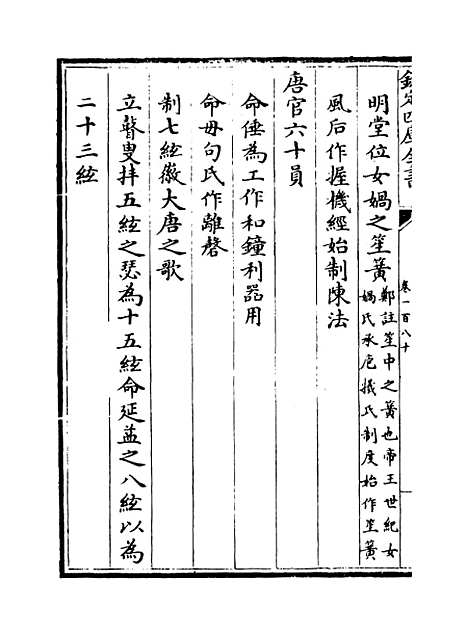 欽定四庫全書
卷一百八十
明堂位女媧之笙簧
鄭註笙中之簧也帝王世紀女
媧氏承庖犧氏制度始作笙簧
風后作握機經始制陳法
唐官六十員
命倕為工作和鐘利器用
命毋句氏作離磬
制七絃徽大唐之歌
立瞽叟拌五絃之瑟為十五絃命延益之八絃以為
二十三絃